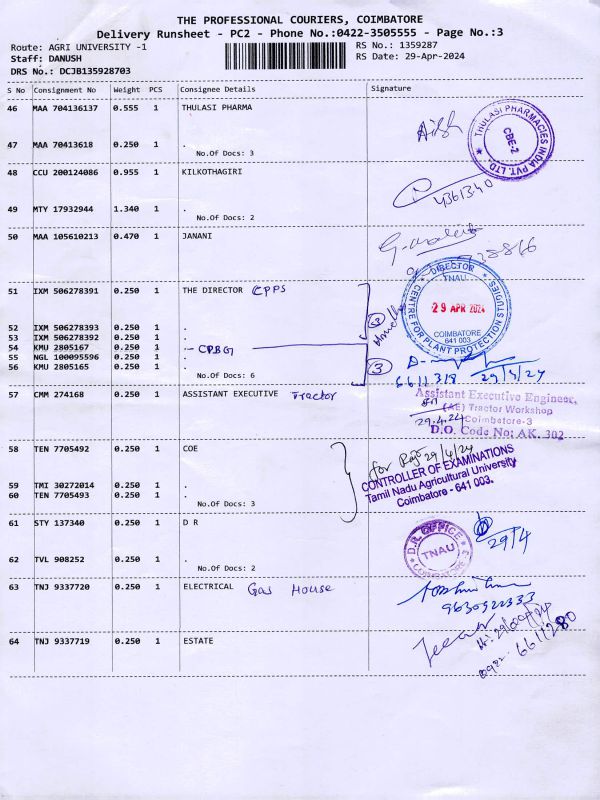 THE PROFESSIONAL COURIERS, COIMBATORE
Delivery Runsheet - PC2 - Phone No.:0422-3505555 - Page No.:3
Route: AGRI UNIVERSITY -1
RS No.: 1359287
Staff: DANUSH
RS Date: 29-Apr-2024
DRS No.: DCJB135928703
S No Consignment No Weight PCS Consignee Details Signature
46 MAA 704136137 0.555 1 THULASI PHARMA
THULASI PHARMACIES INDIA PVT. LTD.
CBE-2
47 MAA 70413618 0.250 1 .
No.Of Docs: 3
48 CCU 200124086 0.955 1 KILKOTHAGIRI
4361340
49 MTY 17932944 1.340 1 .
No.Of Docs: 2
50 MAA 105610213 0.470 1 JANANI
51 IXM 506278391 0.250 1 THE DIRECTOR CPPS
DIRECTOR
TNAU
CENTRE FOR PLANT PROTECTION STUDIES
29 APR 2024
COIMBATORE
641 003
52 IXM 506278393 0.250 1 .
53 IXM 506278392 0.250 1 .
54 KMU 2805167 0.250 1 . CPBG
55 NGL 100095596 0.250 1 .
56 KMU 2805165 0.250 1 .
No.Of Docs: 6
3
6611318 29/4/24
57 CMM 274168 0.250 1 ASSISTANT EXECUTIVE Tractor
Assistant Executive Engineer,
(AE) Tractor Workshop
Coimbatore-3
29.4.24
D.O. Code No: AK. 302
58 TEN 7705492 0.250 1 COE
for 29/4/24
CONTROLLER OF EXAMINATIONS
Tamil Nadu Agricultural University
Coimbatore - 641 003.
59 TMI 30272014 0.250 1 .
60 TEN 7705493 0.250 1 .
No.Of Docs: 3
61 STY 137340 0.250 1 D R
D.R. OFFICE
TNAU
29/4
62 TVL 908252 0.250 1 .
No.Of Docs: 2
63 TNJ 9337720 0.250 1 ELECTRICAL Gas House
9630922333
64 TNJ 9337719 0.250 1 ESTATE
6611280